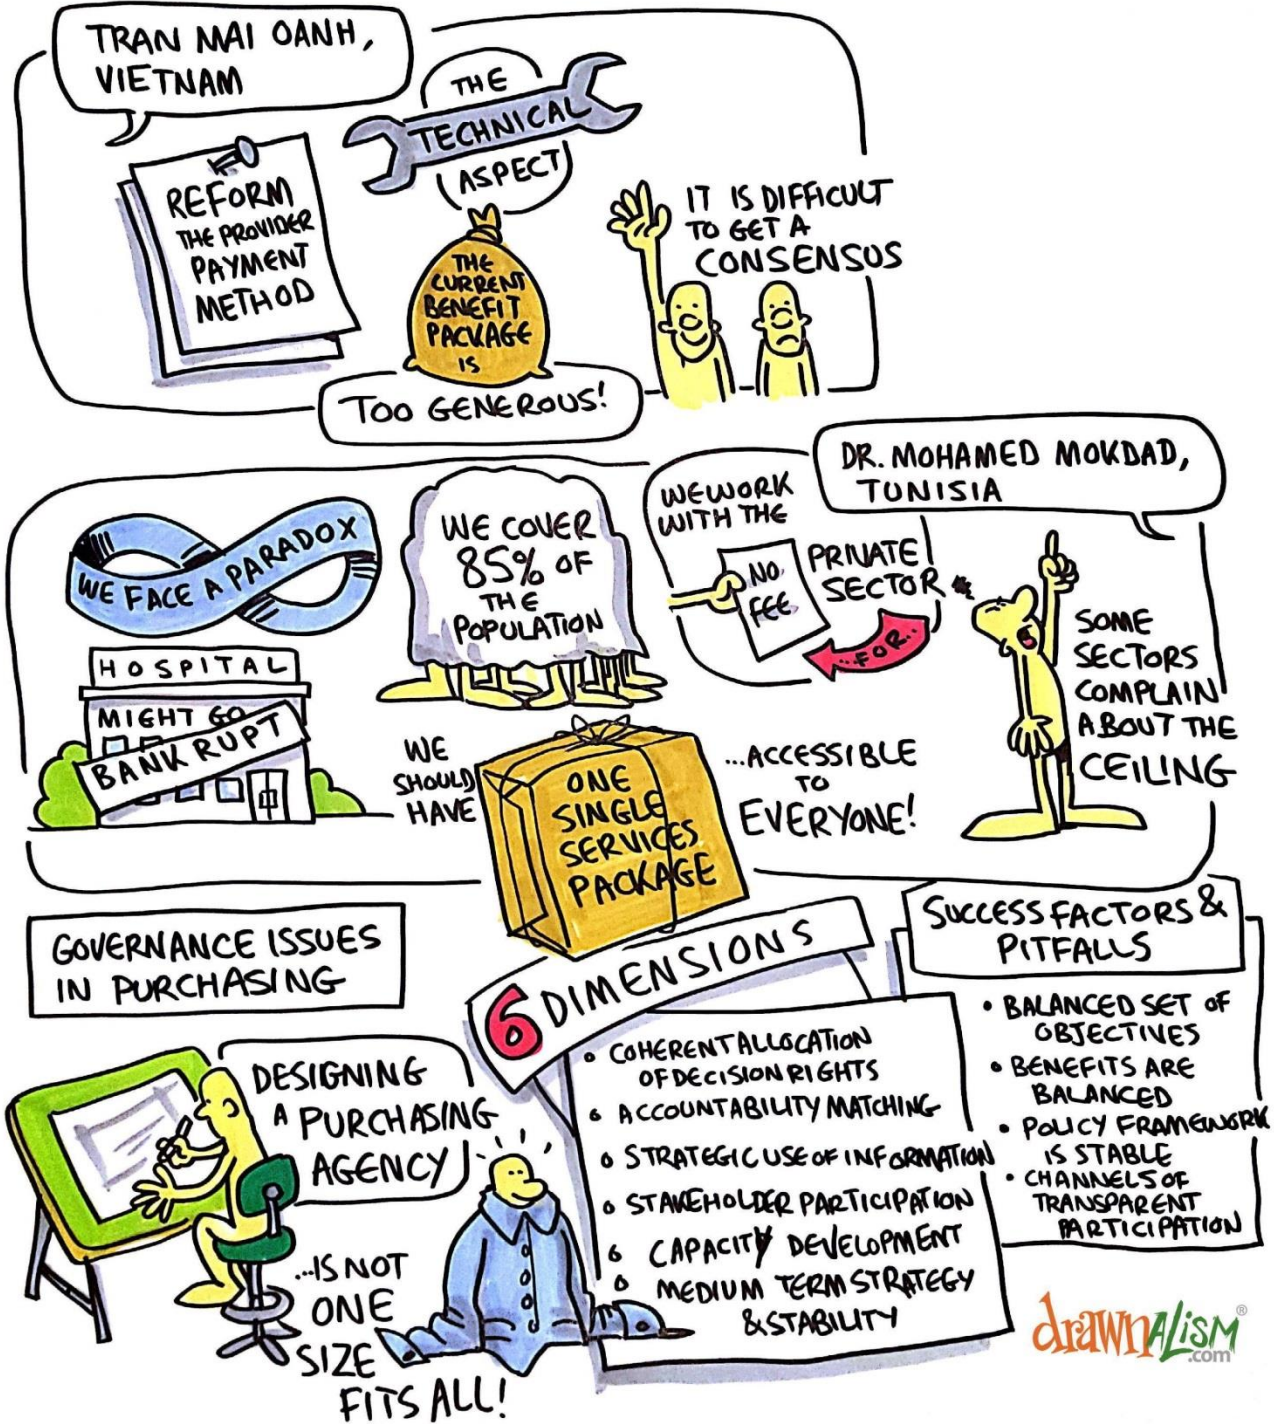 TRAN MAI OANH,
VIETNAM
REFORM
THE PROVIDER
PAYMENT
METHOD
THE
TECHNICAL
ASPECT
THE
CURRENT
BENEFIT
PACKAGE
IS
TOO GENEROUS!
IT IS DIFFICULT
TO GET A
CONSENSUS
DR. MOHAMED MOKDAD,
TUNISIA
WE FACE A PARADOX
HOSPITAL
MIGHT GO
BANKRUPT
WE COVER
85% OF
THE
POPULATION
WE WORK
WITH THE
PRIVATE
SECTOR
..FOR..
NO
FEE
SOME
SECTORS
COMPLAIN
ABOUT THE
CEILING
WE
SHOULD
HAVE
ONE
SINGLE
SERVICES
PACKAGE
...ACCESSIBLE
TO
EVERYONE!
GOVERNANCE ISSUES
IN PURCHASING
DESIGNING
A PURCHASING
AGENCY
...IS NOT
ONE
SIZE
FITS ALL!
6 DIMENSIONS
• COHERENT ALLOCATION
OF DECISION RIGHTS
• ACCOUNTABILITY MATCHING
• STRATEGIC USE OF INFORMATION
• STAKEHOLDER PARTICIPATION
• CAPACITY DEVELOPMENT
• MEDIUM TERM STRATEGY
& STABILITY
SUCCESS FACTORS &
PITFALLS
• BALANCED SET OF
OBJECTIVES
• BENEFITS ARE
BALANCED
• POLICY FRAMEWORK
IS STABLE
• CHANNELS OF
TRANSPARENT
PARTICIPATION
drawnALISM®
.com